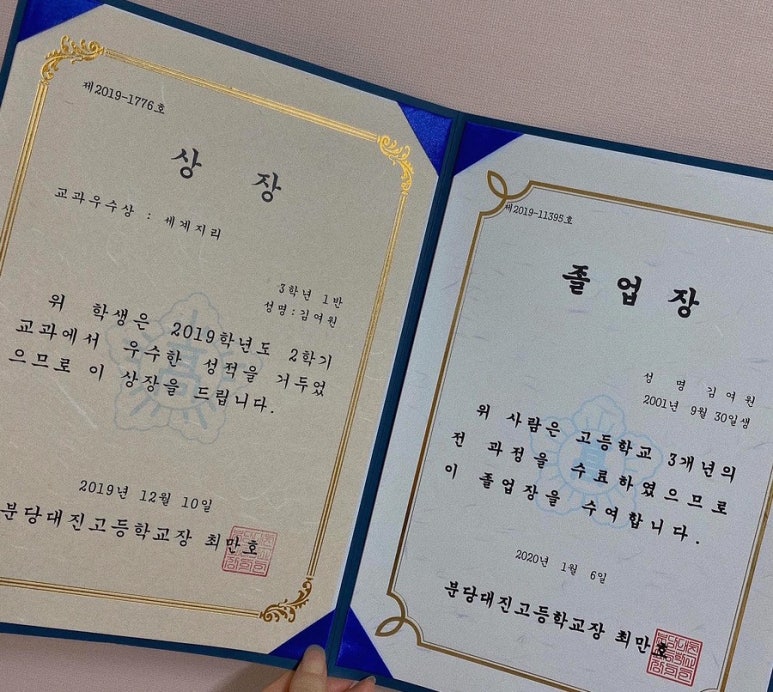 제2019-1776호
상 장
교과우수상 : 세계지리
3학년 1반
성명:김여원
위 학생은 2019학년도 2학기
교과에서 우수한 성적을 거두었
으므로 이 상장을 드립니다.
2019년 12월 10일
분당대진고등학교장 최만호
제2019-11395호
졸업장
성 명 김여원
2001년 9월 30일생
위 사람은 고등학교 3개년의
전 과정을 수료하였으므로
이 졸업장을 수여합니다.
2020년 1월 6일
분당대진고등학교장 최만호